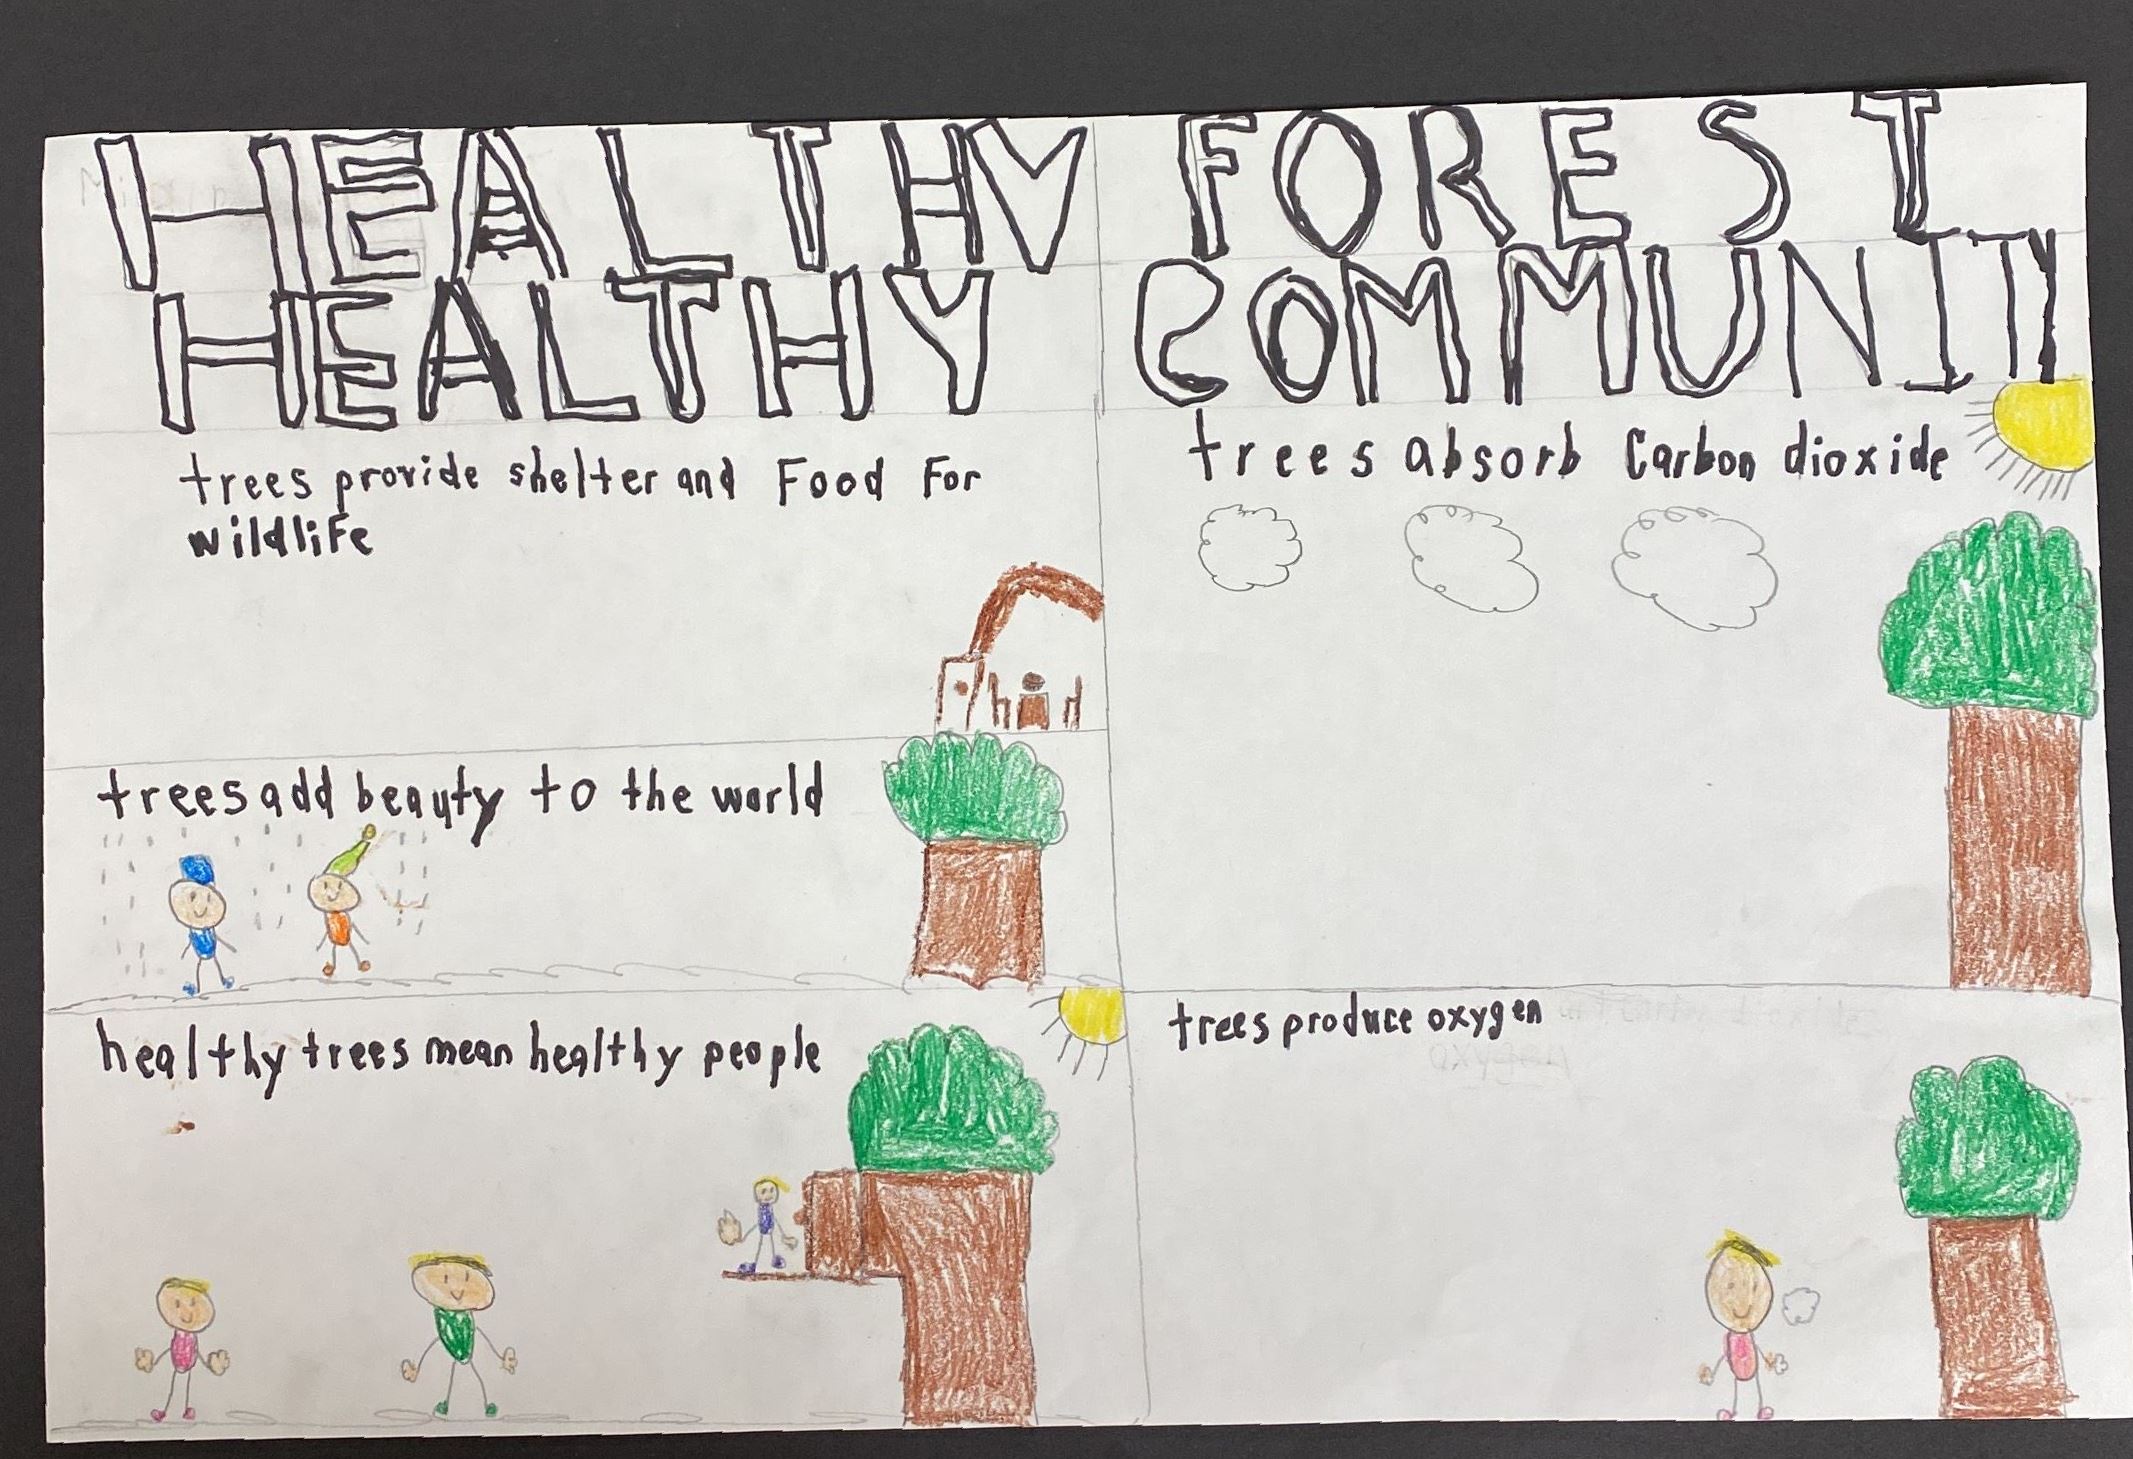 HEALTHY FOREST
HEALTHY COMMUNITY
trees provide shelter and Food For
wildlife
trees absorb Carbon dioxide
trees add beauty to the world
healthy trees mean healthy people
trees produce oxygen